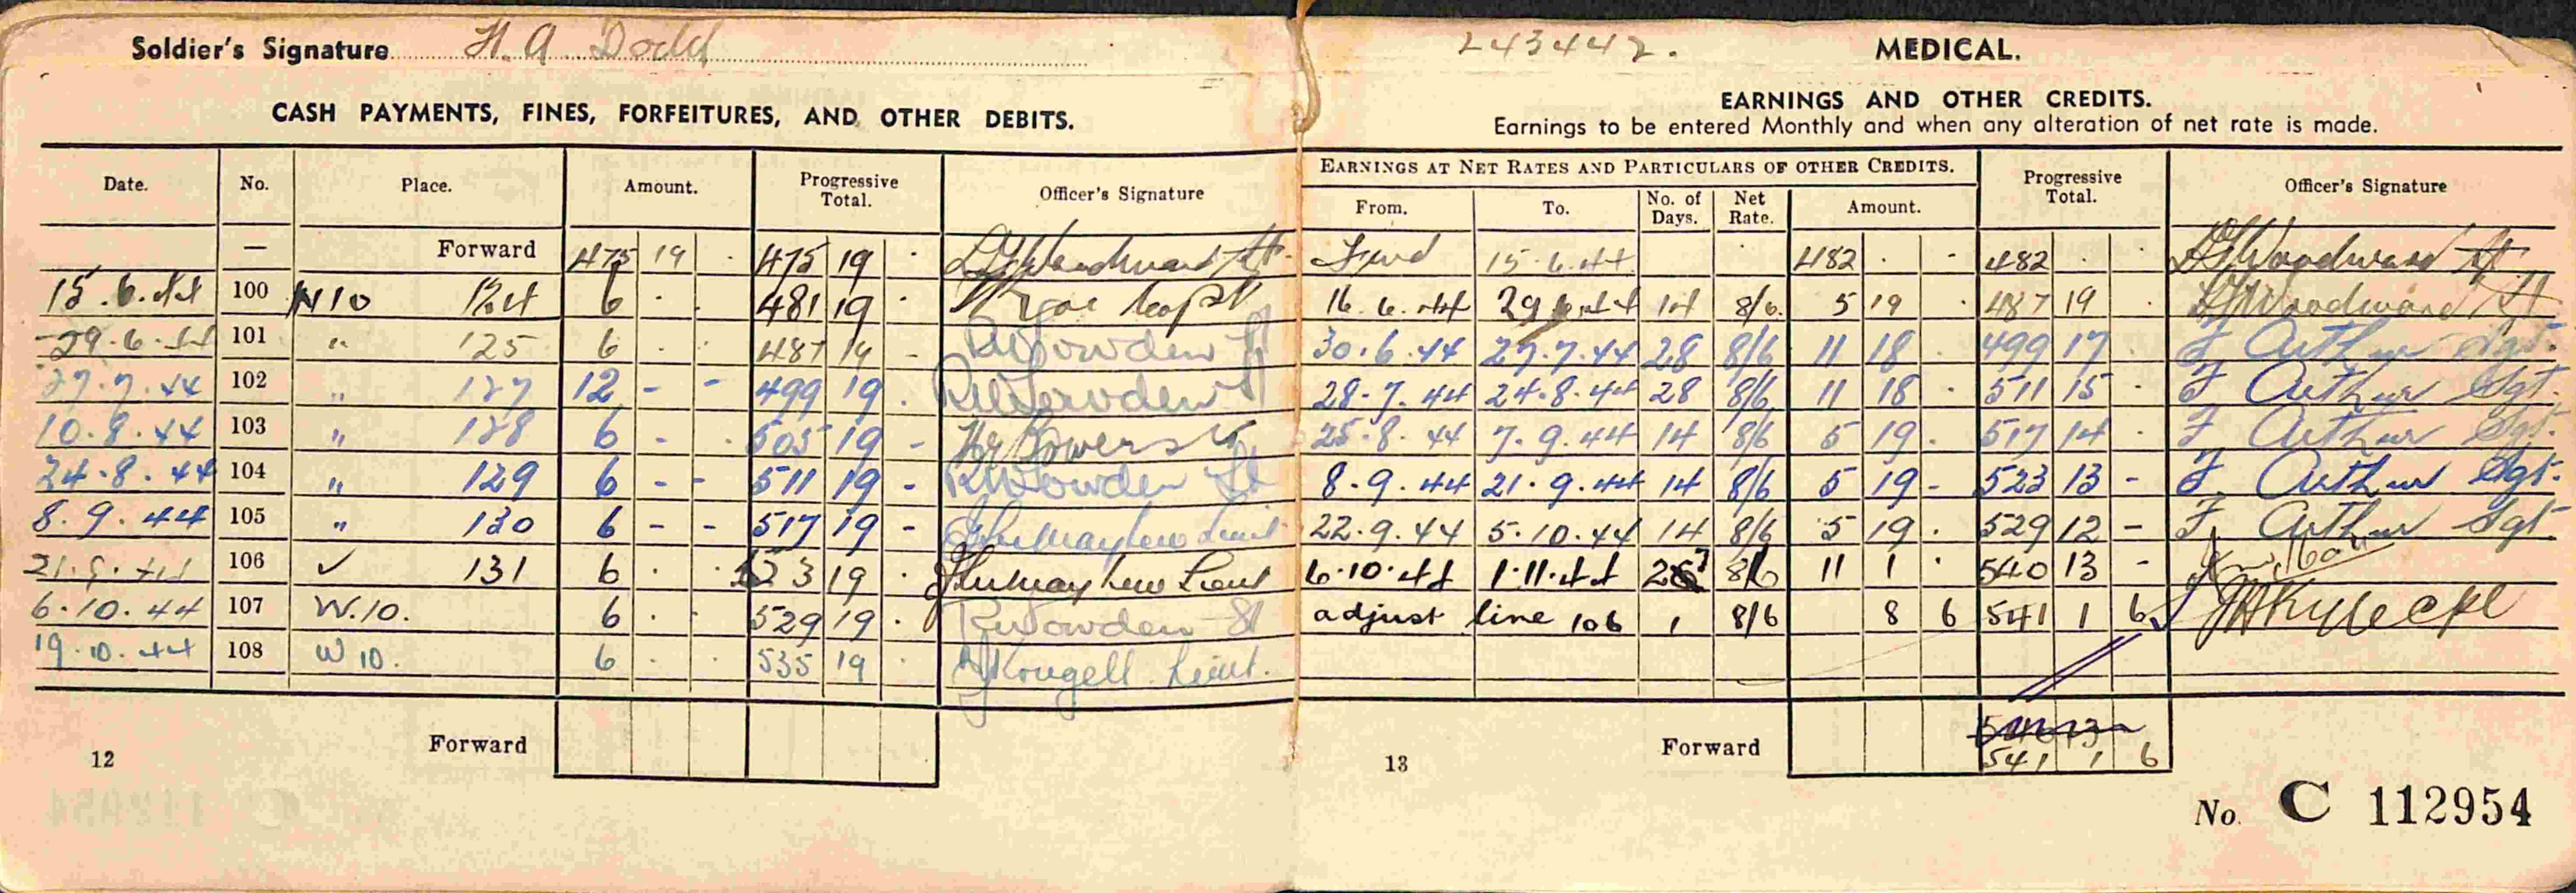 Soldier's Signature H. A. Dodd
CASH PAYMENTS, FINES, FORFEITURES, AND OTHER DEBITS.
Date. No. Place. Amount. Progressive Total. Officer's Signature
— Forward 475 19 . 475 19 .
15.6.44 100 124 6 . . 481 19 .
29.6.44 101 " 125 6 . . 487 19 -
27.7.44 102 " 127 12 - - 499 19 .
10.8.44 103 " 128 6 - . 505 19 -
24.8.44 104 " 129 6 - - 511 19 -
8.9.44 105 " 130 6 - - 517 19 - Lieut
21.9.44 106 ✓ 131 6 . . 523 19 . Lieut
6.10.44 107 W.10. 6 . . 529 19 .
19.10.44 108 W 10. 6 . . 535 19 . Lieut.
Forward
12
243442. MEDICAL.
EARNINGS AND OTHER CREDITS.
Earnings to be entered Monthly and when any alteration of net rate is made.
EARNINGS AT NET RATES AND PARTICULARS OF OTHER CREDITS. Progressive Total. Officer's Signature
From. To. No. of Days. Net Rate. Amount.
15.6.44 482 . - 482 . . Woodward Lt
16.6.44 29.6.44 14 8/6. 5 19 . 487 19 . Woodward Lt
30.6.44 27.7.44 28 8/6 11 18 . 499 17 . F Arthur Sgt.
28.7.44 24.8.44 28 8/6 11 18 . 511 15 - F Arthur Sgt.
25.8.44 7.9.44 14 8/6 5 19 . 517 14 . F Arthur Sgt.
8.9.44 21.9.44 14 8/6 5 19 - 523 13 - F Arthur Sgt.
22.9.44 5.10.44 14 8/6 5 19 . 529 12 - F Arthur Sgt.
6.10.44 1.11.44 8/6 11 1 . 540 13 -
adjust line 106 1 8/6 8 6 541 1 6
Forward 541 1 6
13
No. C 112954